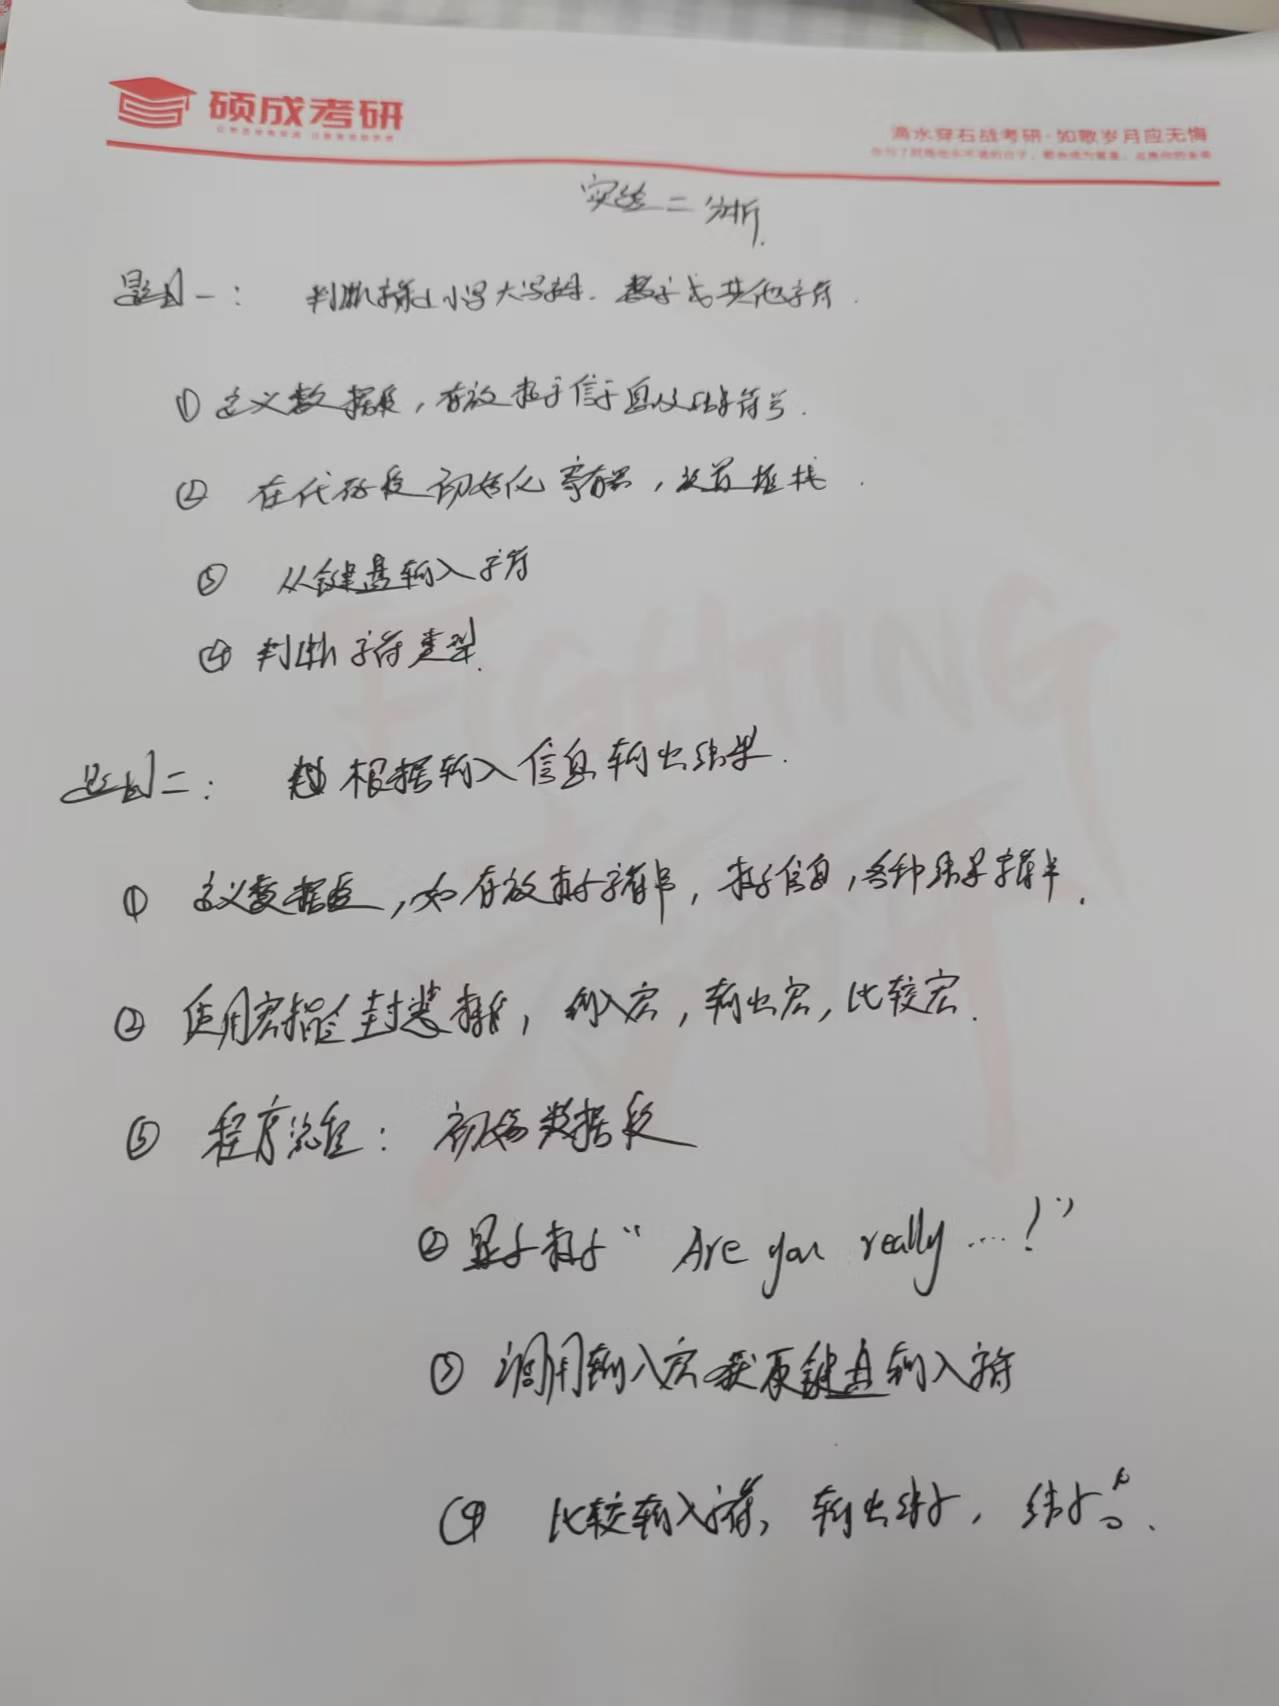 硕成考研
滴水穿石战考研·如歌岁月应无悔
实验二分析.
题目一: 判断字符是小写大写字母、数字或其他字符.
① 定义数据段,存放提示信息以及结果符号.
② 在代码段初始化寄存器,设置堆栈.
③ 从键盘输入字符
④ 判断字符类型.
题目二: 根据输入信息输出结果.
① 定义数据段,如存放提示字符串,提示信息,各种结果字符串.
② 使用宏指令封装 输入宏,输出宏,比较宏.
③ 程序流程: 初始数据段
② 显示提示“Are you really ....!”
③ 调用输入宏获取键盘输入字符
④ 比较输入字符,输出结果,结束.
FIGHTING
考研